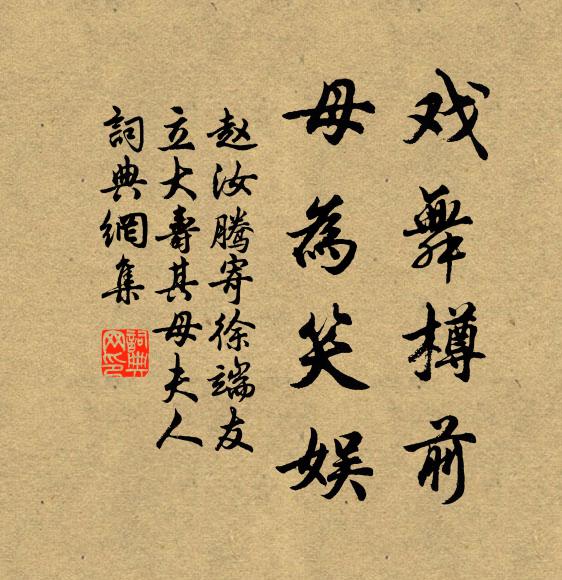 戏舞樽前
母為笑娱
赵汝腾寄徐端友
立大壽其母夫人
詞典網集
詞典網印